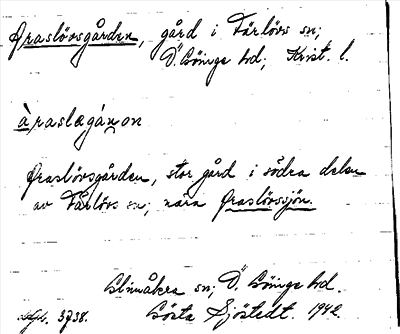 Araslövsgården, gård i Färlövs sn;
Ö. Göinge hd; Krist. l.
àraslægá̱ṇon
Araslövsgården, stor gård i södra delen
av Färlövs sn; nära Araslövssjön.
Glimåkra sn; Ö. Göinge hd.
3738. Gösta Sjöstedt. 1942.